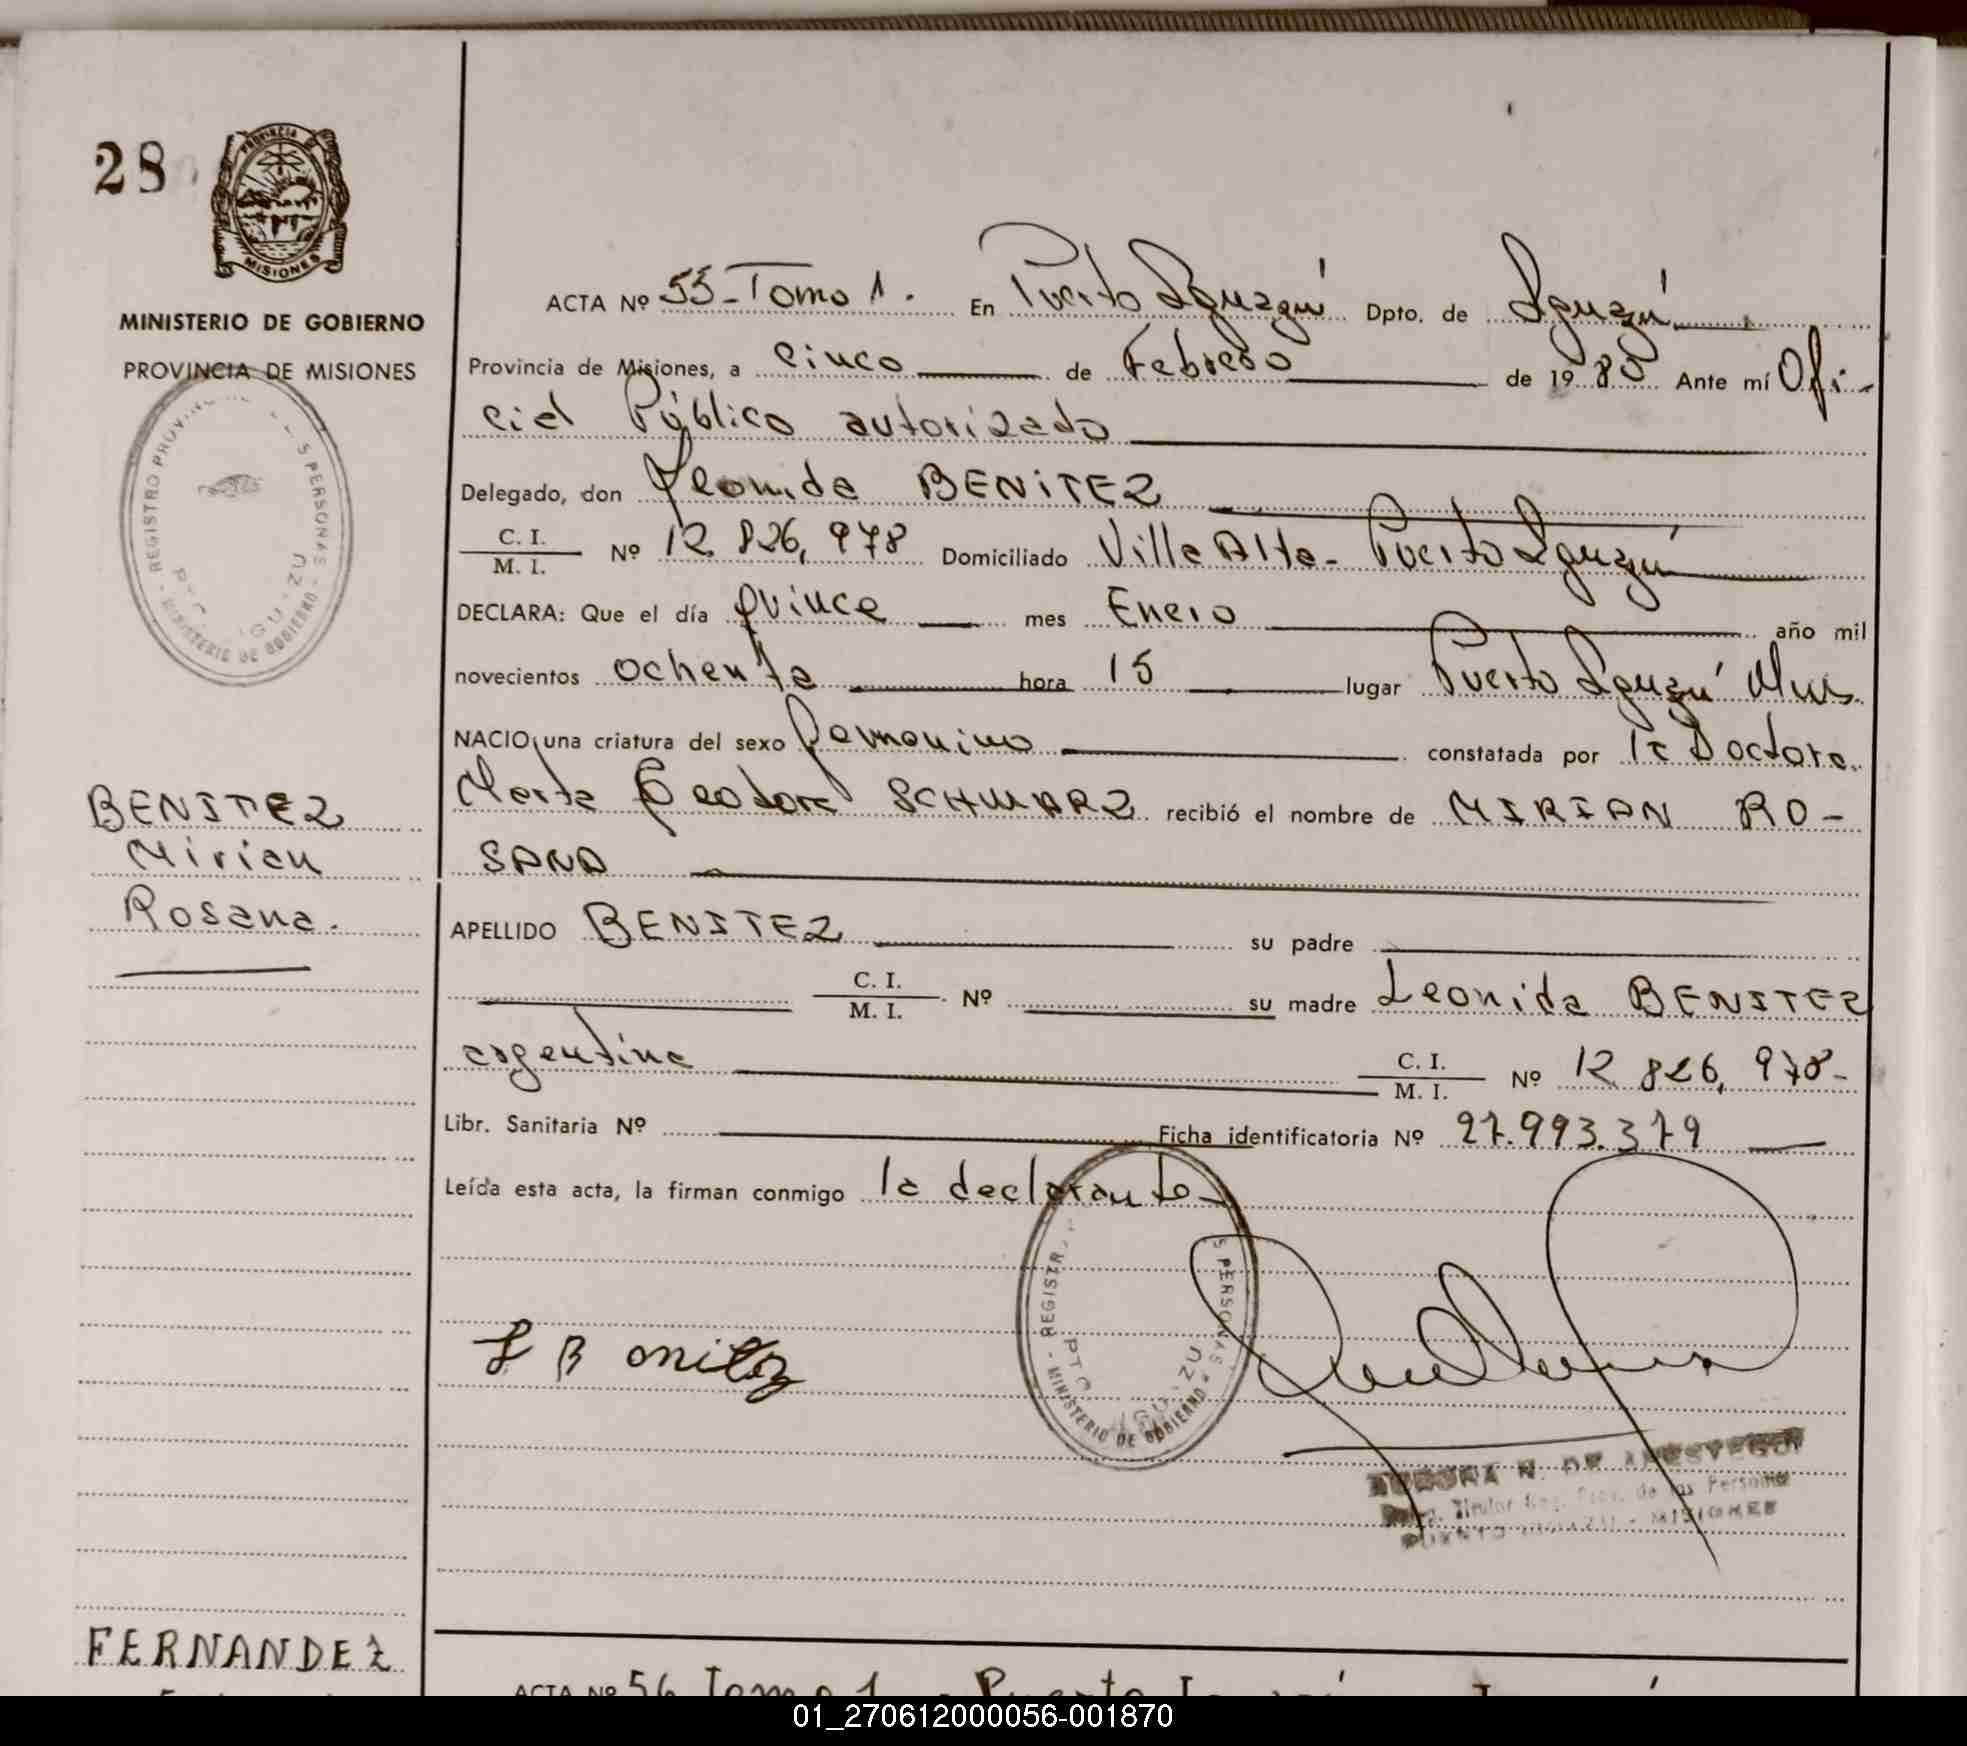 28
PROVINCIA DE
MISIONES
MINISTERIO DE GOBIERNO
PROVINCIA DE MISIONES
REGISTRO PROVIN S PERSONAS - MINISTERIO DE GOBIERNO -
PTO. IGUAZU
BENITEZ
Mirian
Rosana.
FERNANDEZ
ACTA Nº 55-Tomo 1. En Puerto Iguazú Dpto. de Iguazú
Provincia de Misiones, a cinco de Febrero de 1980 Ante mí Ofi-
cial Público autorizado
Delegado, don Leonida BENITEZ
C. I.
M. I. Nº 12.826,978 Domiciliado Villa Alta- Puerto Iguazú
DECLARA: Que el día quince mes Enero año mil
novecientos ochenta hora 15 lugar Puerto Iguazú Mnes.
NACIO una criatura del sexo femenino constatada por la Doctora.
Marta Teodora SCHWARZ recibió el nombre de MIRIAN RO-
SANA
APELLIDO BENITEZ su padre
C. I.
M. I. Nº su madre Leonida BENITEZ
argentina C. I.
M. I. Nº 12.826,978-
Libr. Sanitaria Nº Ficha identificatoria Nº 27.993.379
Leída esta acta, la firman conmigo la declarante-
REGISTR S PERSONAS - MINISTERIO DE GOBIERNO -
PTO. IGUAZU
L Benitez
N. DE
Titular Reg. Prov. de las Personas
PUERTO IGUAZU - MISIONES
ACTA Nº 56 Tomo 1
01_270612000056-001870